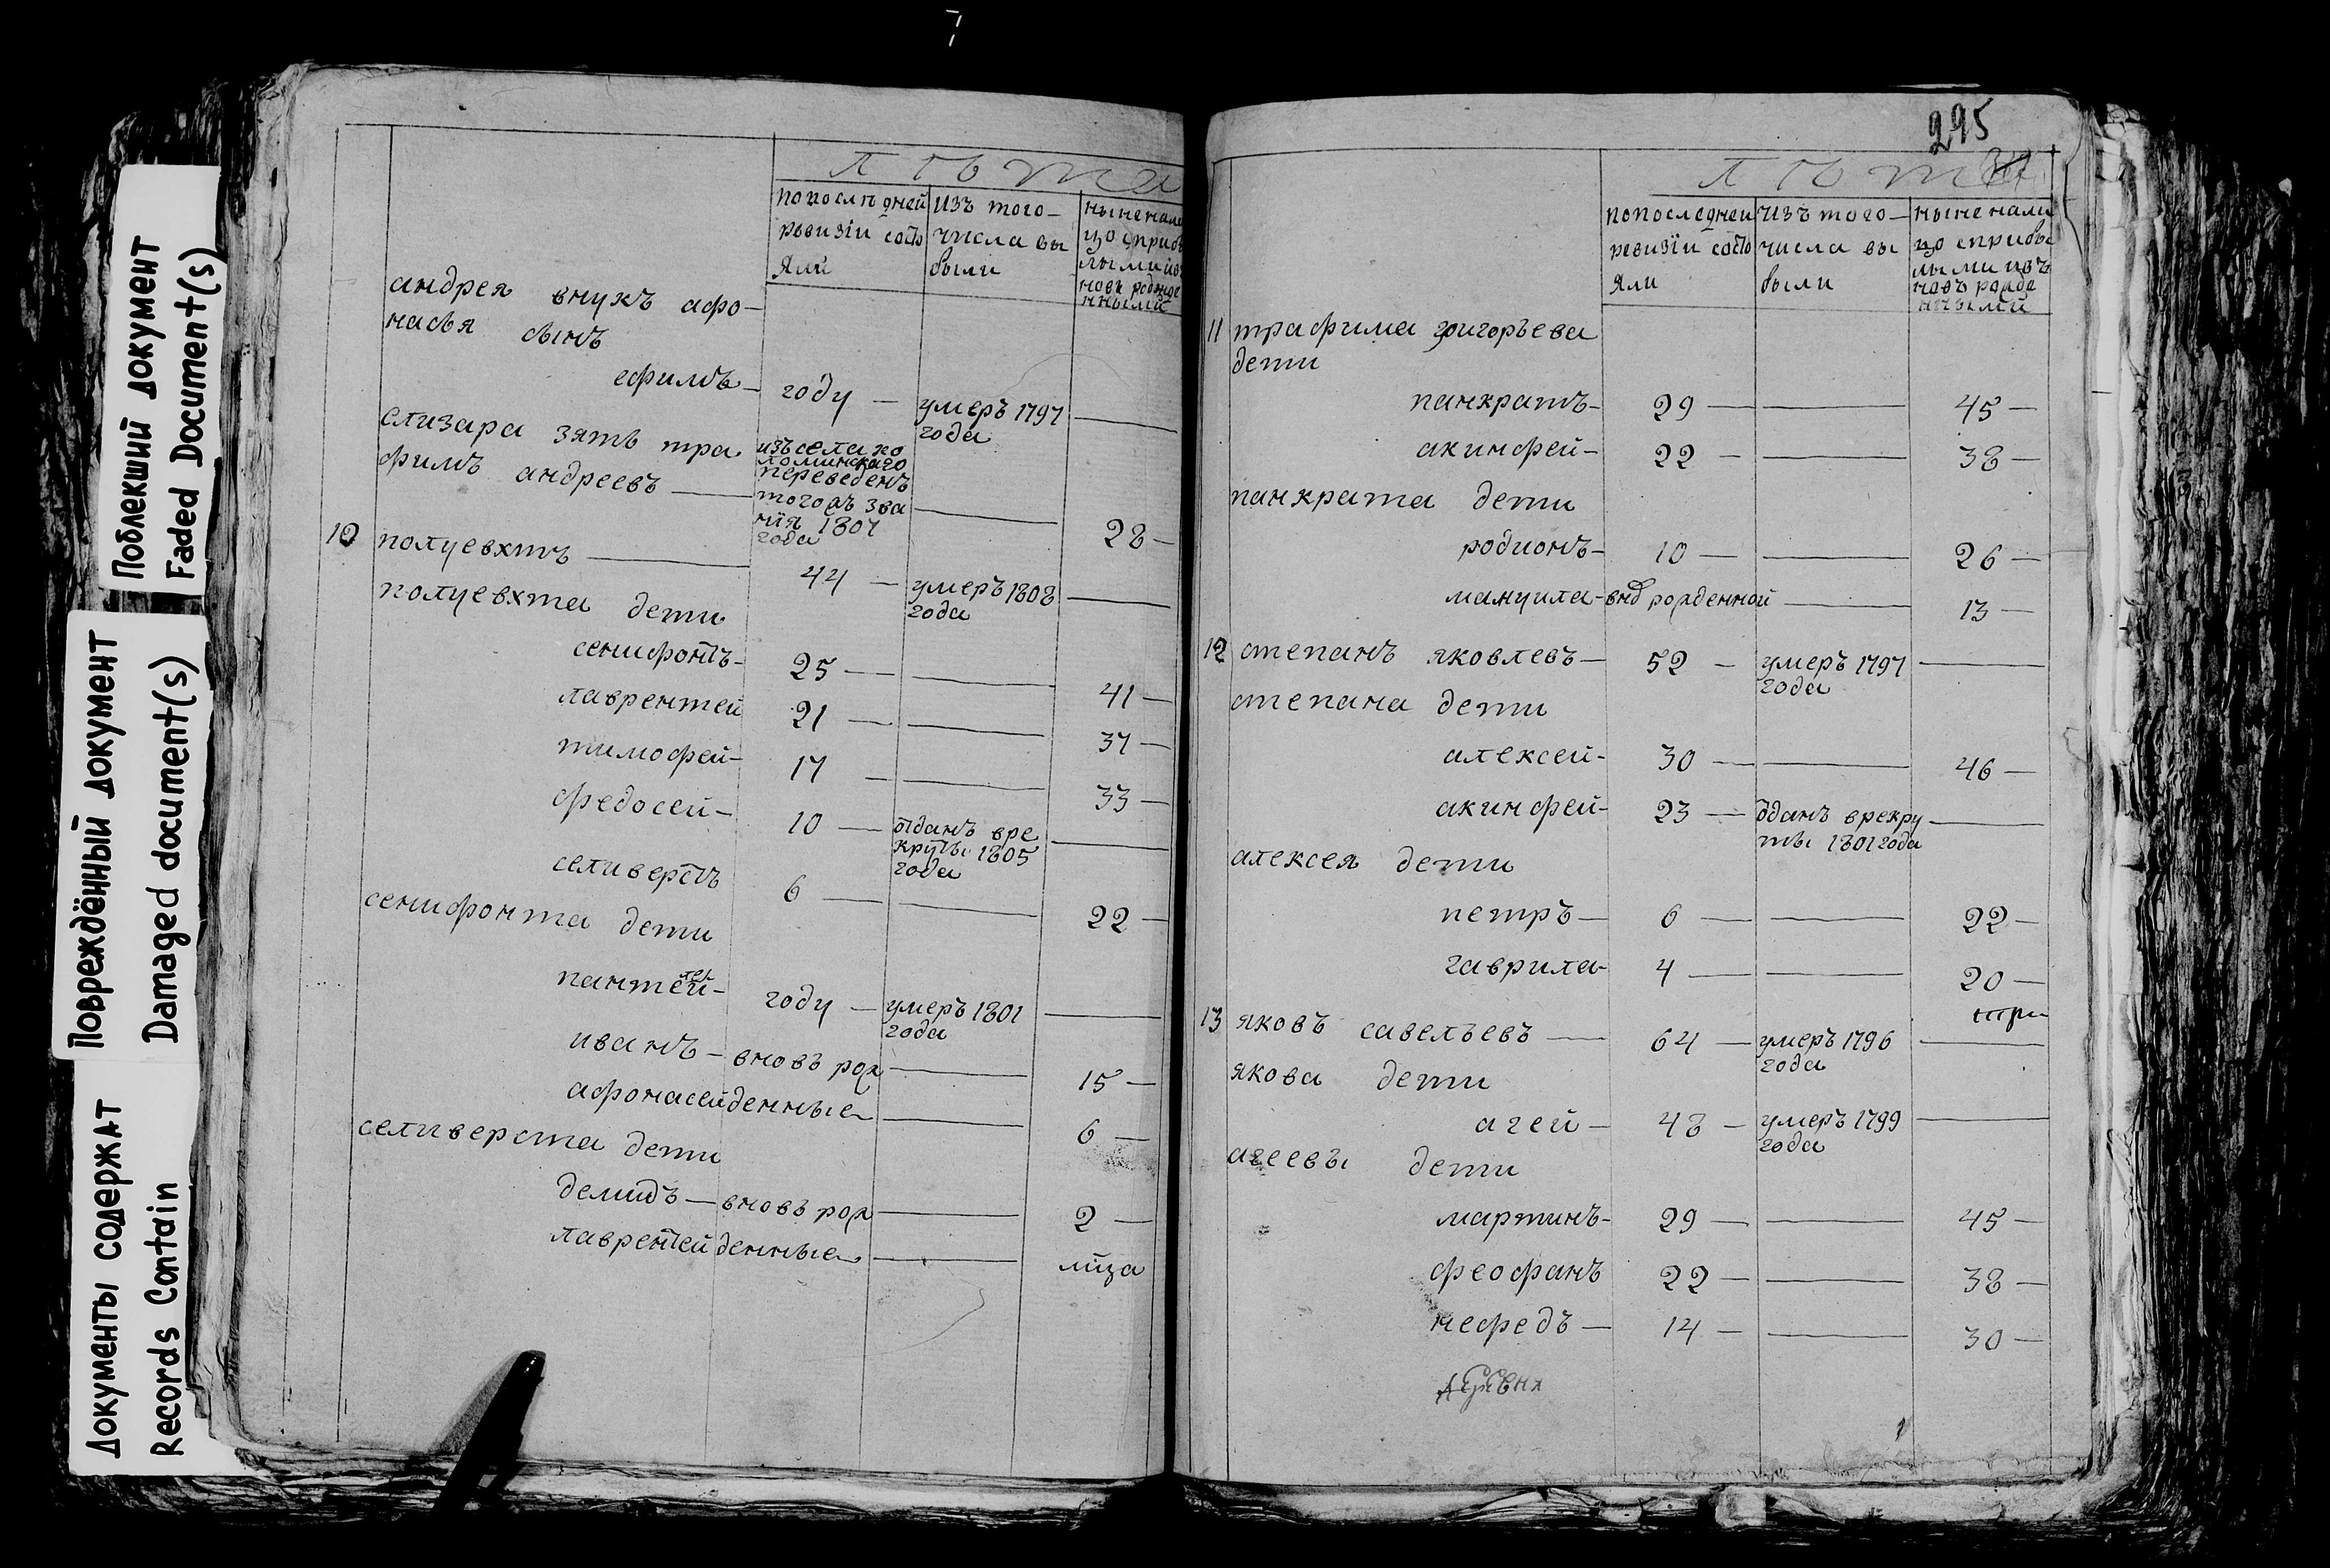 Поблекший документ
Faded Document(s)
Повреждённый документ
Damaged document(s)
Документы содержат
Records Contain
лѣта
попослѣдней ревизіи состояли
изъ того числа выбыли
андрея внукъ афо-
насья сынъ
ефимъ- году — умеръ 1797 года —
елизара зять тра-
фимъ андреевъ — изъ села коломинскаго переведенъ того ... звания 1807 года — 28 —
10 полуевхтъ — 44 — умеръ 1808 года —
полуевхта дети
сенифонтъ- 25 — — 41 —
лаврентей 21 — — 37 —
тимофей- 17 — — 33 —
федосей- 10 — отданъ врекруты 1805 года —
селиверстъ 6 — — 22 —
сенифонта дети
пантелей- году — умеръ 1801 года —
иванъ- вновь рож — 15 —
афонасей денные — 6 —
селиверста дети
демидъ — вновь рож — 2 —
лаврентей денные — мца
295
лѣта
попоследней ревизіи состояли
изъ того— числа выбыли
ныне нали
цо сприбы
лыми изъ
новъ рожде
нными
11 трафима григорьева
дети
панкратъ- 29 — — 45 —
акинфей- 22 — — 38 —
панкрата дети
родионъ- 10 — — 26 —
мануила- внѡ рожденной — 13 —
12 степанъ яковлевъ— 52 — умеръ 1797 года —
степана дети
алексей- 30 — — 46 —
акинфей- 23 — ѡданъ врекруты 1801 года —
алексея дети
петръ— 6 — — 22 —
гаврила- 4 — — 20 —
три
13 яковъ савельевъ — 64 — умеръ 1796 года —
якова дети
агей — 48 — умеръ 1799 года —
агеевы дети
мартинъ- 29 — — 45 —
феофанъ 22 — — 38 —
нефедъ — 14 — — 30 —
деревня